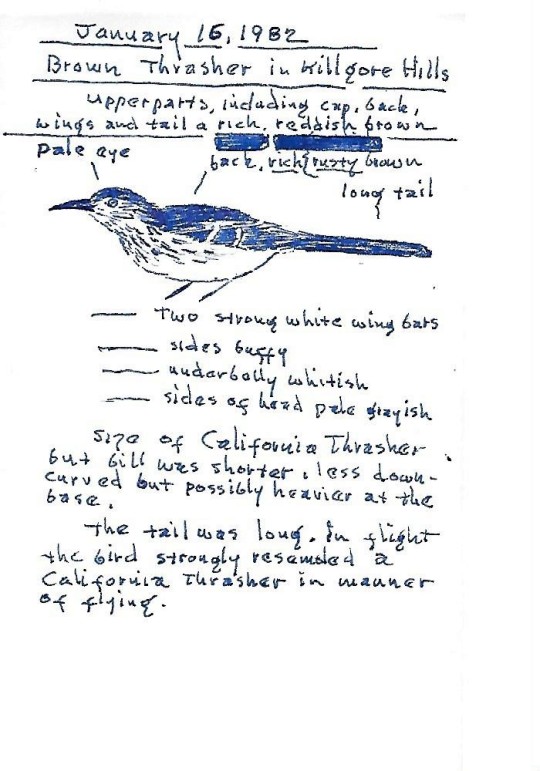 January 16, 1982
Brown Thrasher in Killgore Hills
upperparts, including cap, back,
wings and tail a rich, reddish brown
pale eye
back, rich rusty brown
long tail
Two strong white wing bars
sides buffy
underbelly whitish
sides of head pale grayish
size of California Thrasher
but bill was shorter, less down-
curved but possibly heavier at the
base.
The tail was long. In flight
the bird strongly resembled a
California Thrasher in manner
of flying.